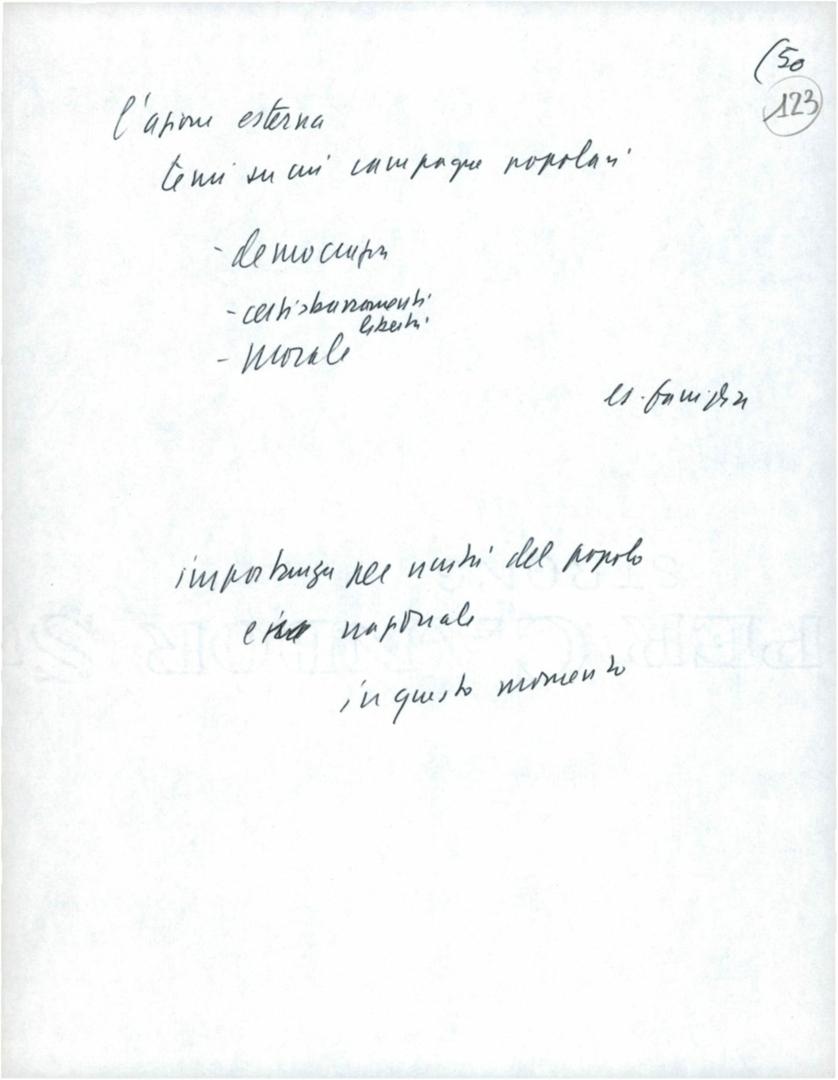 (50
123
l'azione esterna
temi su cui campagne popolari
- democrazia
- certi sbarramenti
libertà
- morale
es. famiglia
importanza per nostri del popolo
e nazionale
in questo momento